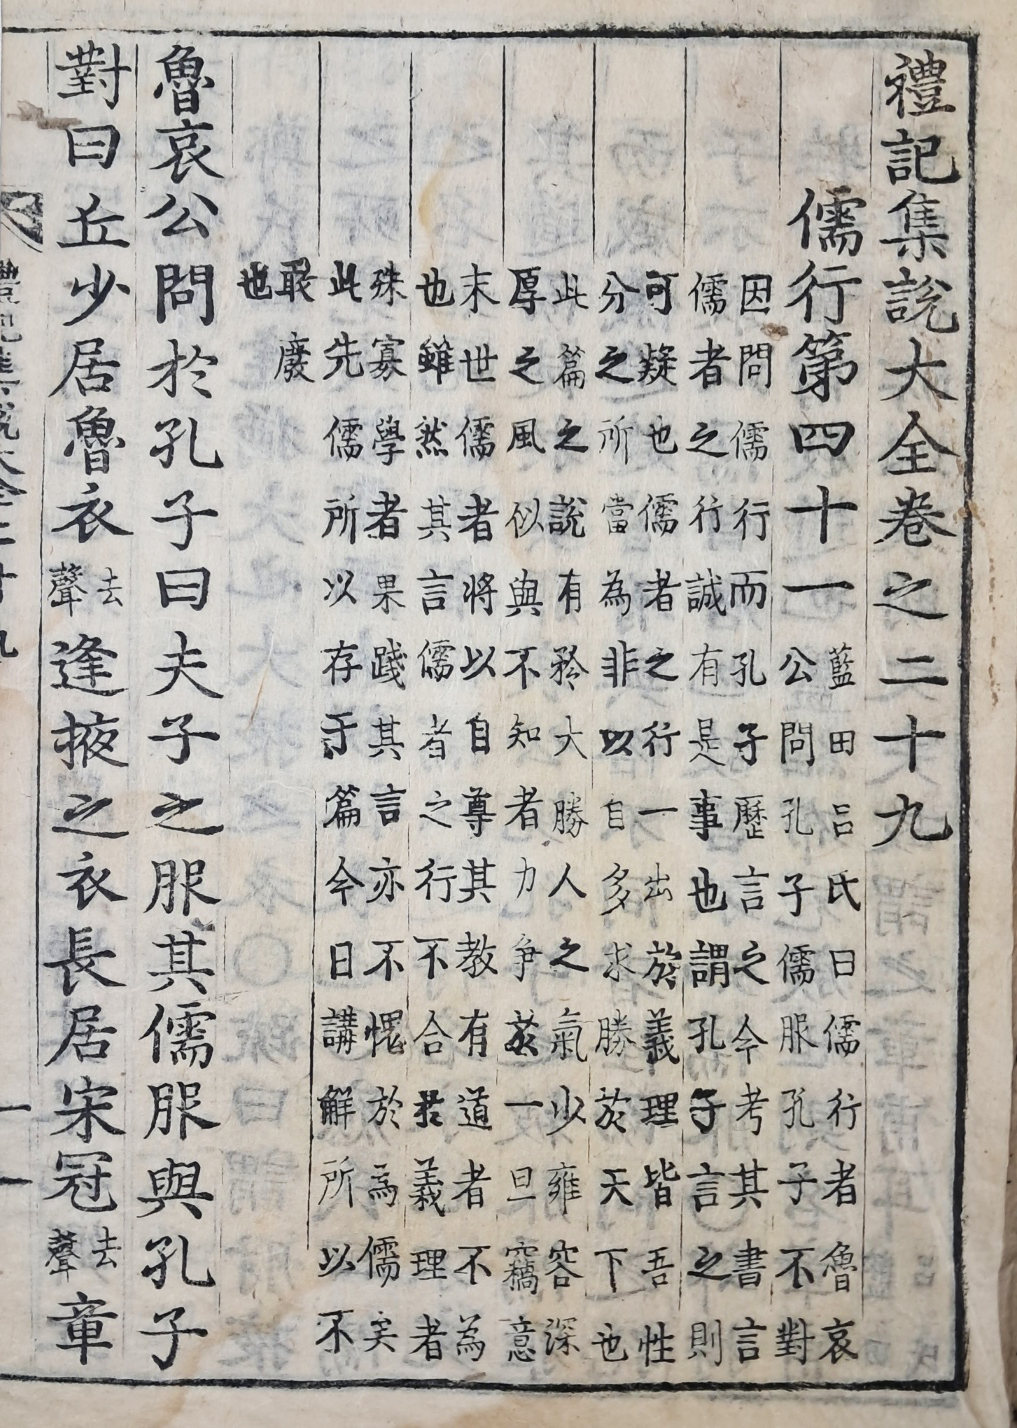 禮記集說大全卷之二十九
儒行第四十一
藍田呂氏曰儒行者魯哀
公問孔子儒服孔子不對
因問儒行而孔子歷言之今考其書言
儒者之行誠有是事也謂孔子言之則
可疑也儒者之行一出於義理皆吾性
分之所當為非以自多求勝於天下也
此篇之說有矜大勝人之氣少雍容深
厚之風似與不知者力爭於一旦竊意
末世儒者將以自尊其教有道者不為
也雖然其言儒者之行不合於義理者
殊寡學者果踐其言亦不愧於為儒矣
此先儒所以存于篇今日講解所以不
敢廢
也
魯哀公問於孔子曰夫子之服其儒服與孔子
對曰丘少居魯衣去聲逢掖之衣長居宋冠去聲章